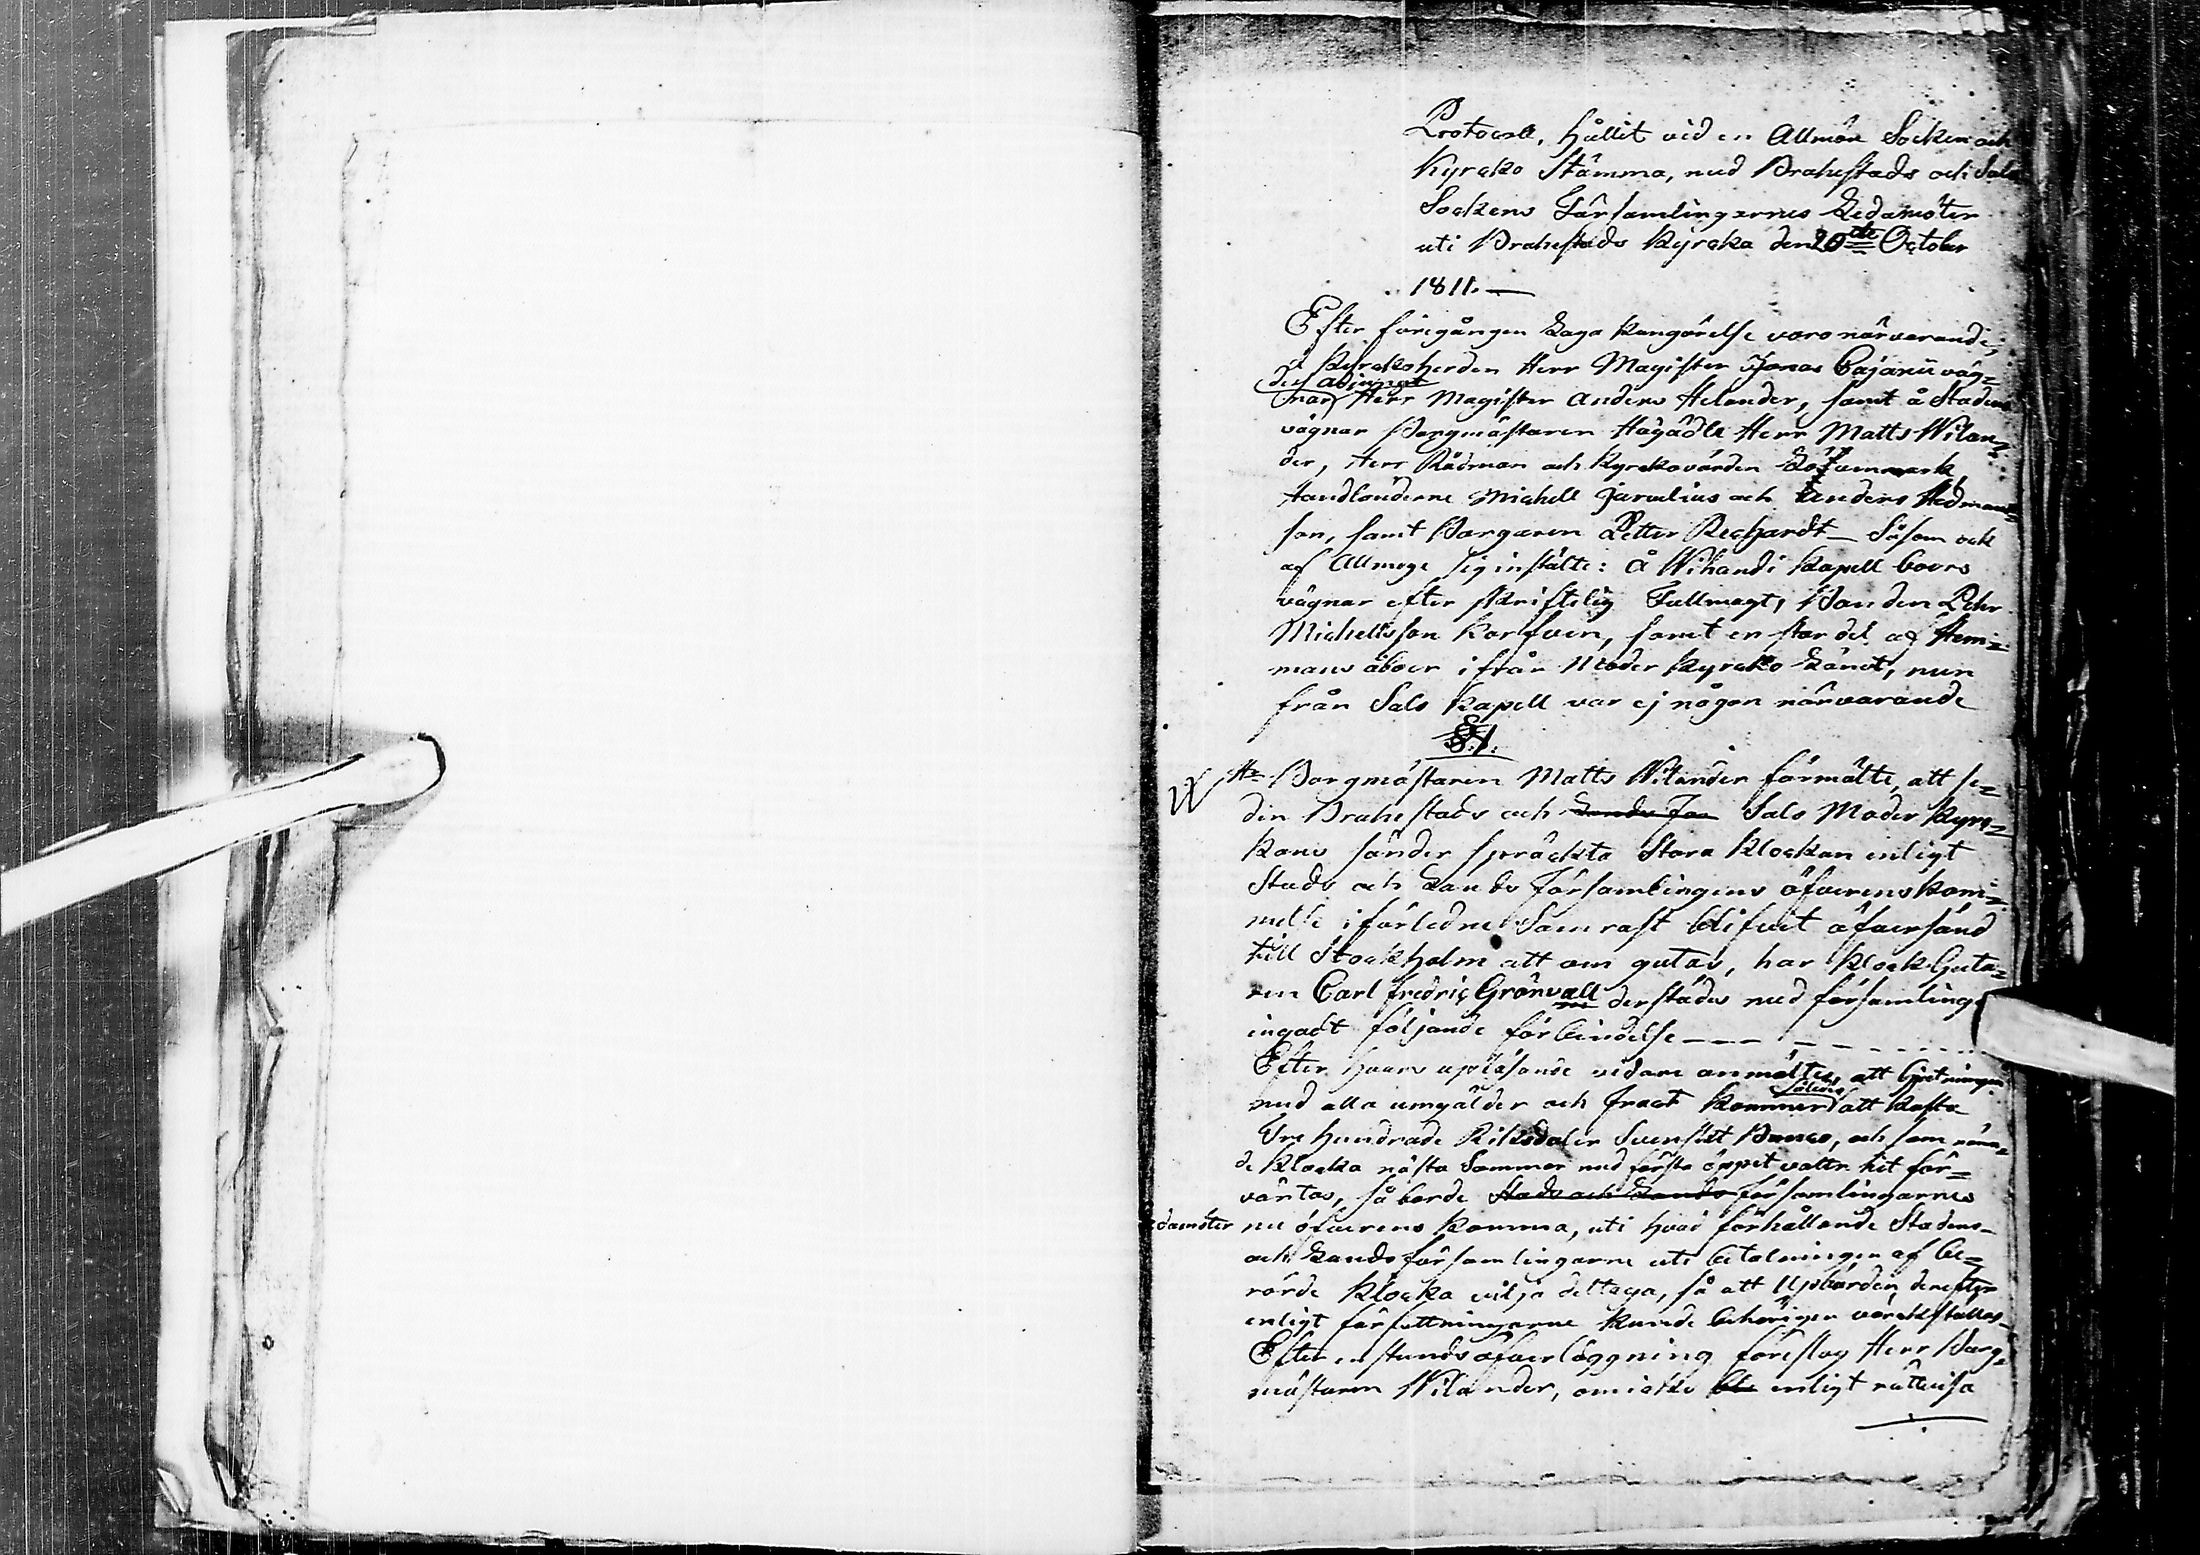 Protocoll, hållit vid en Allmän Socken och
Kyrcko Stämma, med Brahestads och Salo
Sockens Församlingarnes Ledamöter
uti Brahestads Kyrcka den 20de October
1811.—
Efter föregången Laga Kungörelse voro närvarande,
å Kyrckoherden Herr Magister Jonas Cajanii väg=
des Adjunct
nar Herr Magister Anders Helander, samt å Stadens
vägnar Borgmästaren Högädle Herr Matts Wilan=
der, Herr Rådman och Kyrckovärden
Handlanderne Michell Jurvelius och Anders Hedmans=
son, samt Borgaren Petter Rechardt — Såsom ock
af Allmoge sig instälte: å Wihandi Kapell boers
vägnar efter skriftelig Fullmagt, Bonden Pehr
Michellsson Korfven, samt en stor del af Hem=
mans åboer ifrån Moder Kyrcko Länet, men
från Salo Kapell var ej någon närvarande
§.1.
Hr Borgmästaren Matts Wilander förmälte, att se=
den Brahestads och Lands För Salo Moder Kyrc=
kans sönder spräckta Stora Klockan enligt
Stads och Lands Församlingens öfverenskom=
melse i förledne Som rast blifvit öfversänd
till Stockholm att om gutas, har Klock Guta=
ren Carl Fredric Grönvall derstädes med församling
ingådt följande förbindelse — — — — — —
Efter hvars upläsande vidare anmältes, att Gjutningen
således
med alla umgälder och Fract kommer att kosta
Tre hundrade Riksdaler Svenskt Banco, och som näm=
de Klocka nästa Sommar med första öppet vattn hit för=
väntas, så borde Stads och Lands församlingarnes
damöter nu öfverens komma, uti hvad förhållande Stadens
och Lands församlingarne uti betalningen af be=
rörde Klocka vilja deltaga, så att Upbörden derefter
enligt författningarne kunde behörigen värckställas
Efter en stunds öfverläggning föreslog Herr Borg=
mästaren Wilander, om icke enligt rättvisa